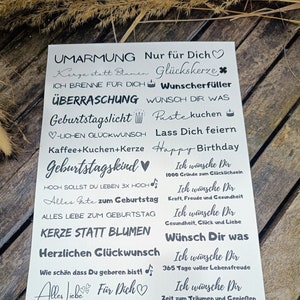 UMARMUNG Nur für Dich♡
Kerze statt Blumen Glückskerze
ICH BRENNE FÜR DICH Wunscherfüller
ÜBERRASCHUNG WÜNSCH DIR WAS
Geburtstagslicht Pustekuchen
♡-LICHEN GLÜCKWUNSCH Lass Dich feiern
Kaffee+Kuchen+Kerze Happy Birthday
Geburtstagskind♥ Ich wünsche Dir
1000 Gründe zum Glücklichsein
HOCH SOLLST DU LEBEN 3X HOCH Ich wünsche Dir
Alles Gute zum Geburtstag Kraft, Freude und Gesundheit
ALLES LIEBE ZUM GEBURTSTAG Ich wünsche Dir
Gesundheit, Glück und Liebe
KERZE STATT BLUMEN Wünsch Dir was
Herzlichen Glückwunsch Ich wünsche Dir
Wie schön dass Du geboren bist! 365 Tage voller Lebensfreude
Alles Liebe Für Dich♡ Ich wünsche Dir
Zeit zum Träumen und Genießen